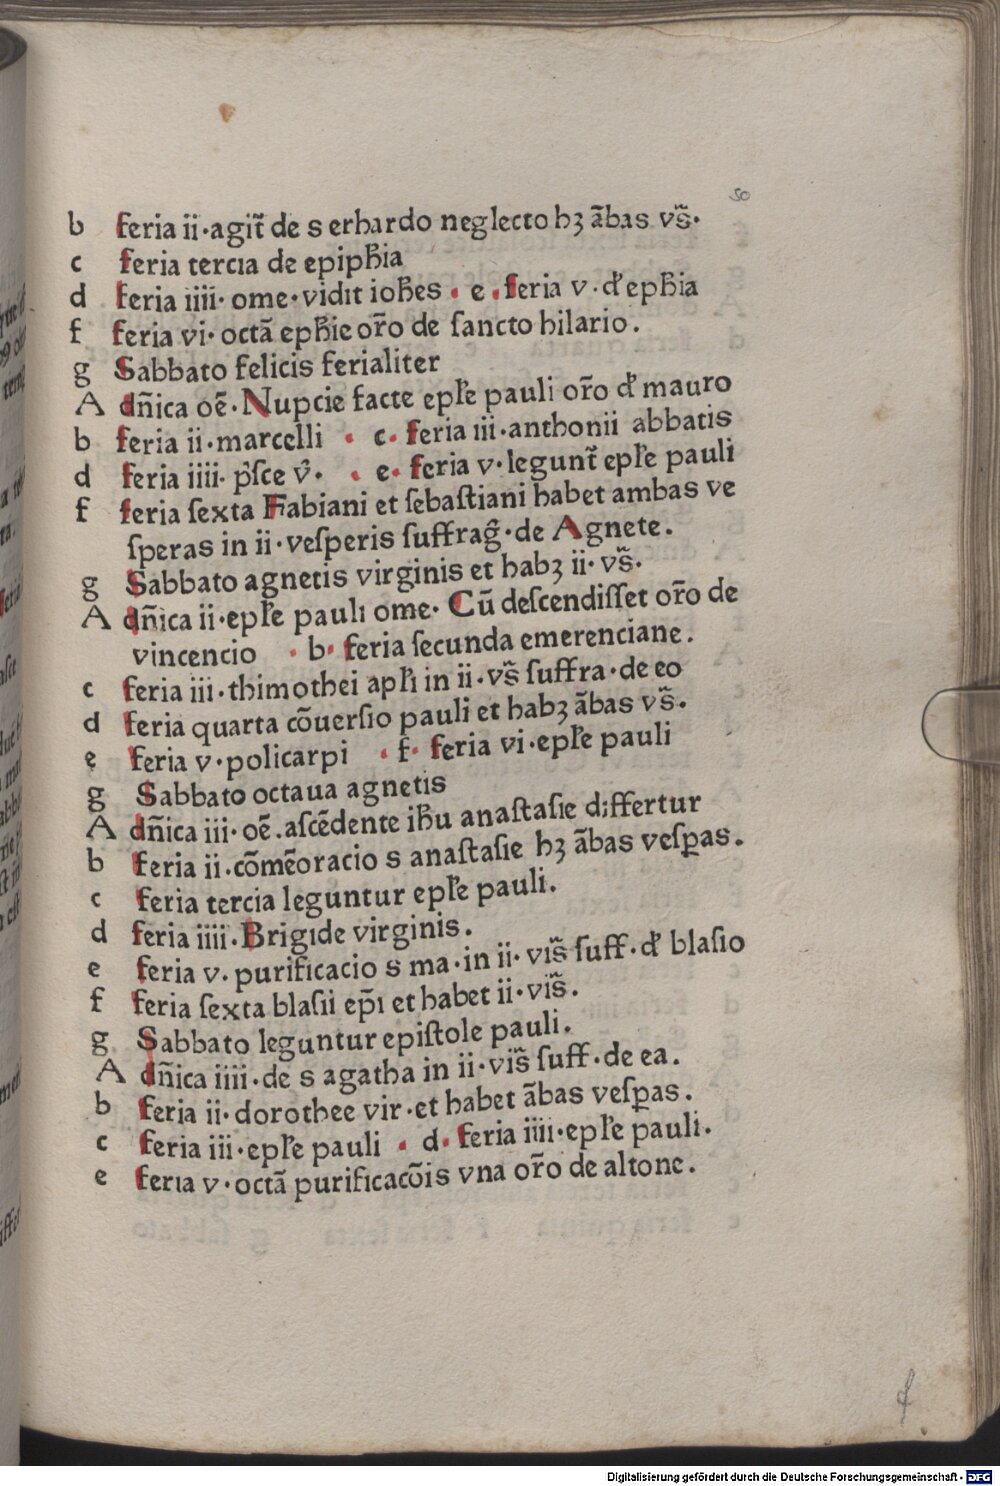 50
b feria ii·agit̃ de s erhardo neglecto hꝫ ãbas vs̃·
c feria tercia de epiph̄ia
d feria iiii· ome·vidit ioh̄es · e ·feria v·d' eph̄ia
f feria vi·octã eph̄ie or̃o de ſancto hilario.
g Sabbato felicis ferialiter
A dñica oẽ·Nupcie facte epl̄e pauli or̃o d' mauro
b feria ii·marcelli · c· feria iii·anthonii abbatis
d feria iiii· p̓ſce v̓· · e· feria v·legunt̃ epl̄e pauli
f feria ſexta Fabiani et ſebaſtiani habet ambas ve
ſperas in ii·veſperis ſuffrag̃·de Agnete.
g Sabbato agnetis virginis et habꝫ ii· vs̃·
A dñica ii·epl̄e pauli ome· Cũ deſcendiſſet or̃o de
vincencio · b· feria ſecunda emerenciane.
c feria iii·thimothei apl̄i in ii·vs̃ ſuffra·de eo
d feria quarta cõuerſio pauli et habꝫ ãbas vs̃.
e feria v·policarpi · f· feria vi·epl̄e pauli
g Sabbato octaua agnetis
A dñica iii·oẽ.aſcẽdente ih̄u anaſtaſie differtur
b feria ii·cõmẽoracio s anaſtaſie hꝫ ãbas veſꝑas.
c feria tercia leguntur epl̄e pauli.
d feria iiii·Brigide virginis.
e feria v·purificacio s ma·in ii·vis̃ ſuff·d' blaſio
f feria ſexta blaſii ep̃i et habet ii·vis̃.
g Sabbato leguntur epiſtole pauli.
A dñica iiii·de s agatha in ii·vis̃ ſuff·de ea.
b feria ii·dorothee vir·et habet ãbas veſꝑas.
c feria iii·epl̄e pauli · d· feria iiii·epl̄e pauli.
e feria v·octã purificacõis vna or̃o de altone.
Digitalisierung gefördert durch die Deutsche Forschungsgemeinschaft · DFG